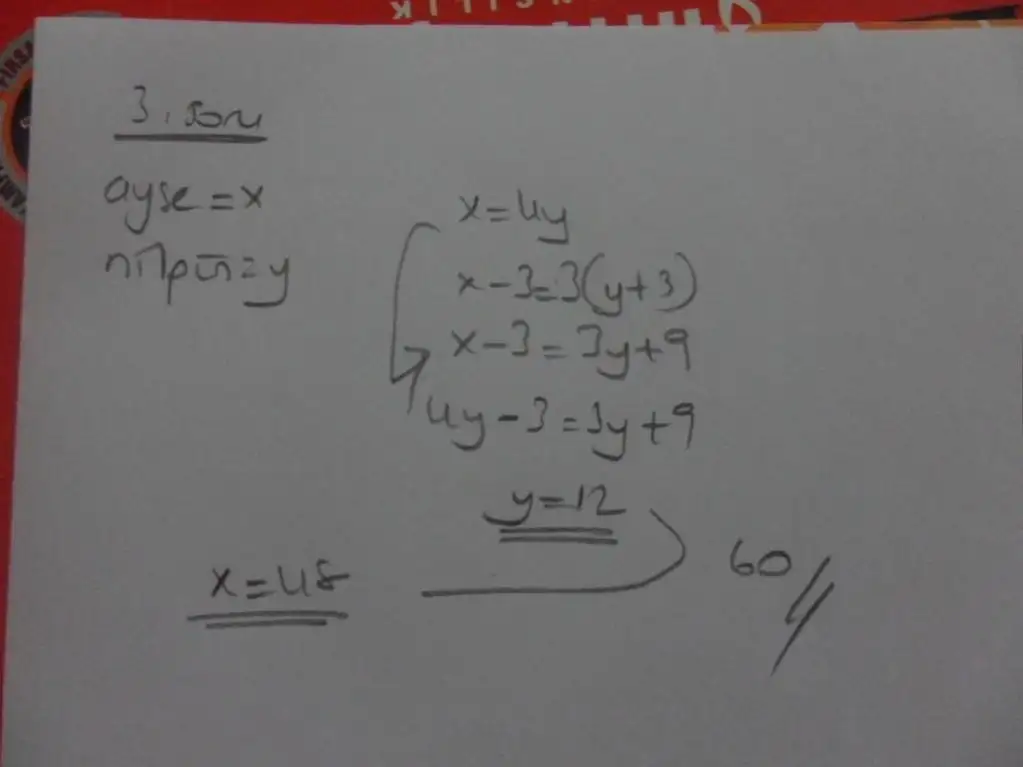 3. soru
ayşe = x
nilgün = y
x = 4y
x - 3 = 3(y + 3)
x - 3 = 3y + 9
4y - 3 = 3y + 9
y = 12
x = 48
60